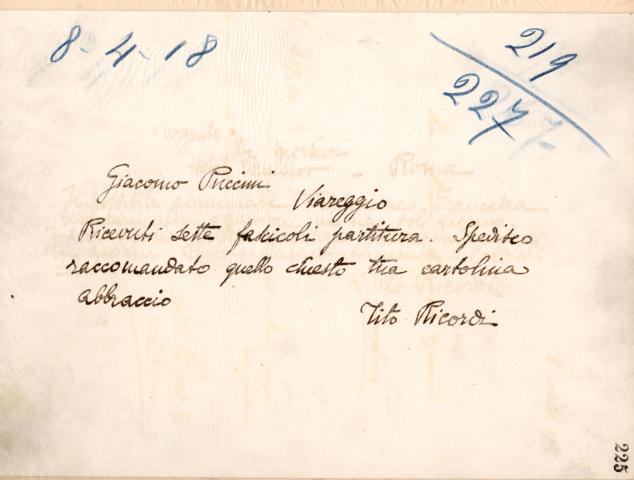 8-4-18
219
227
Giacomo Puccini
Viareggio
Ricevuti sette fascicoli partitura. Spedisco
raccomandato quello chiesto tua cartolina
abbraccio
Tito Ricordi
225